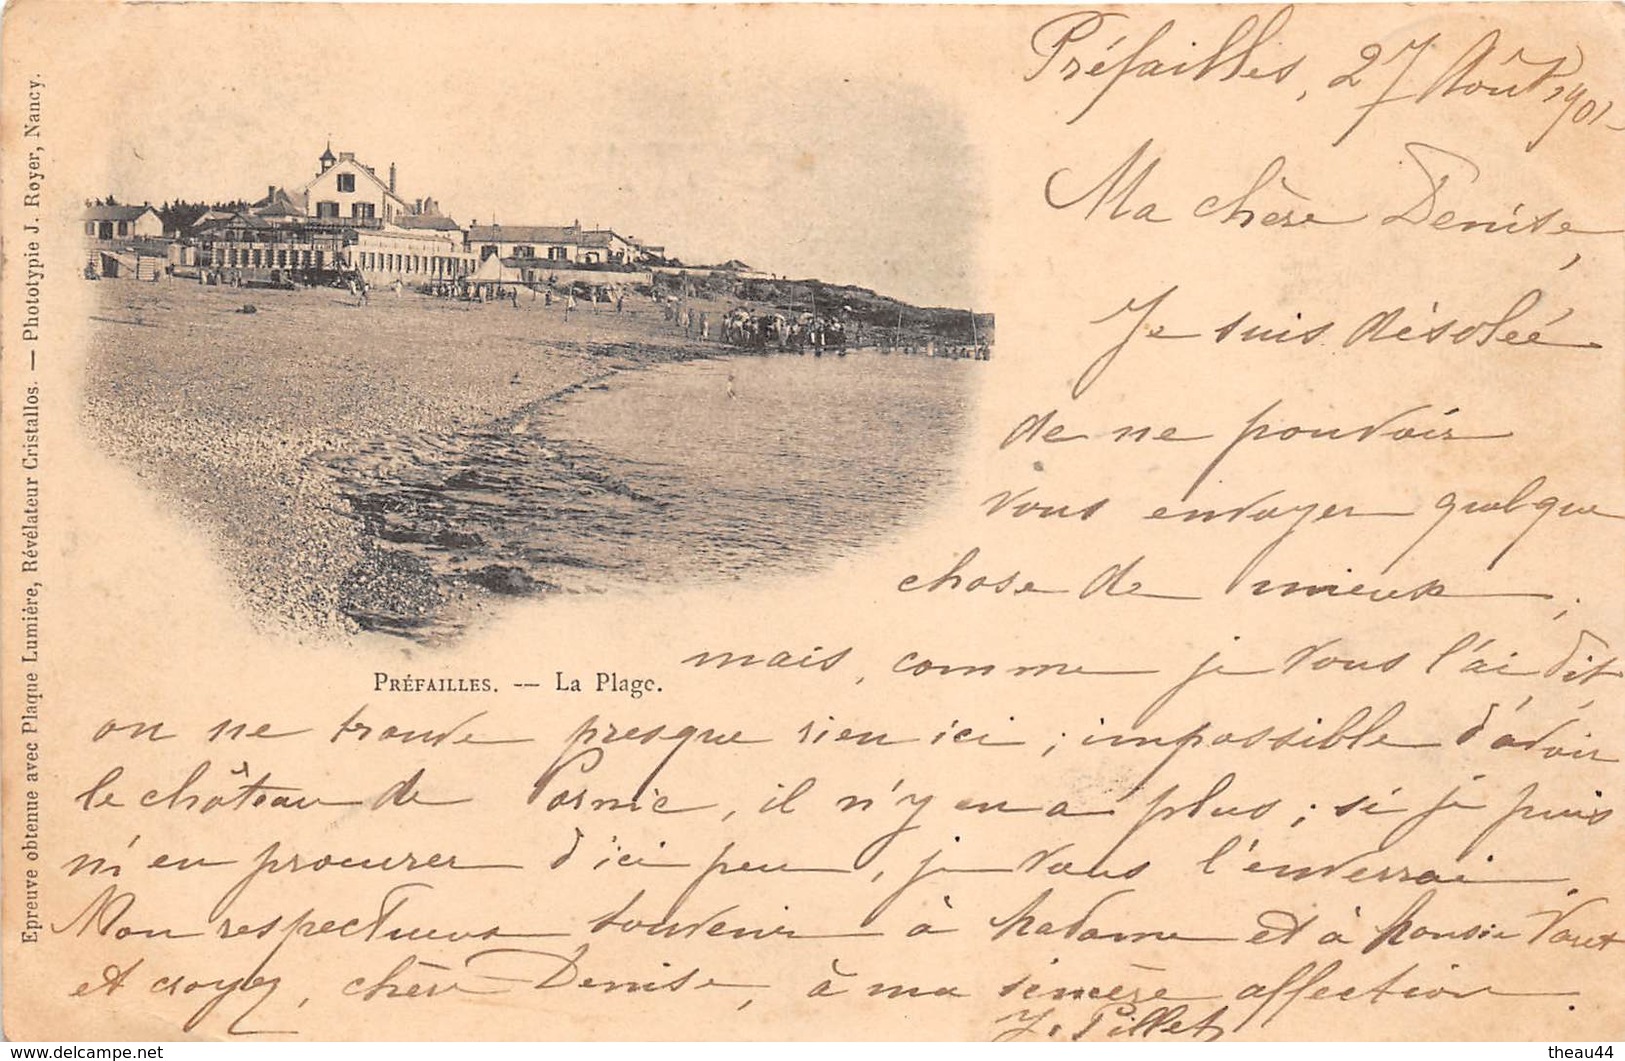 Préfailles, 27 Août 1901
Ma chère Denise,
Je suis désolée
de ne pouvoir
vous envoyer quelque
chose de mieux,
mais, comme je vous l'ai dit
on ne trouve presque rien ici ; impossible d'avoir
le château de Pornic, il n'y en a plus ; si je puis
m'en procurer d'ici peu, je vous l'enverrai.
Mon respectueux souvenir à Madame et à Monsie
et croyez, chère Denise, à ma sincère affection.
Y. Pillet
PRÉFAILLES. — La Plage.
Epreuve obtenue avec Plaque Lumière, Révélateur Cristallos. — Phototypie J. Royer, Nancy.
theau44